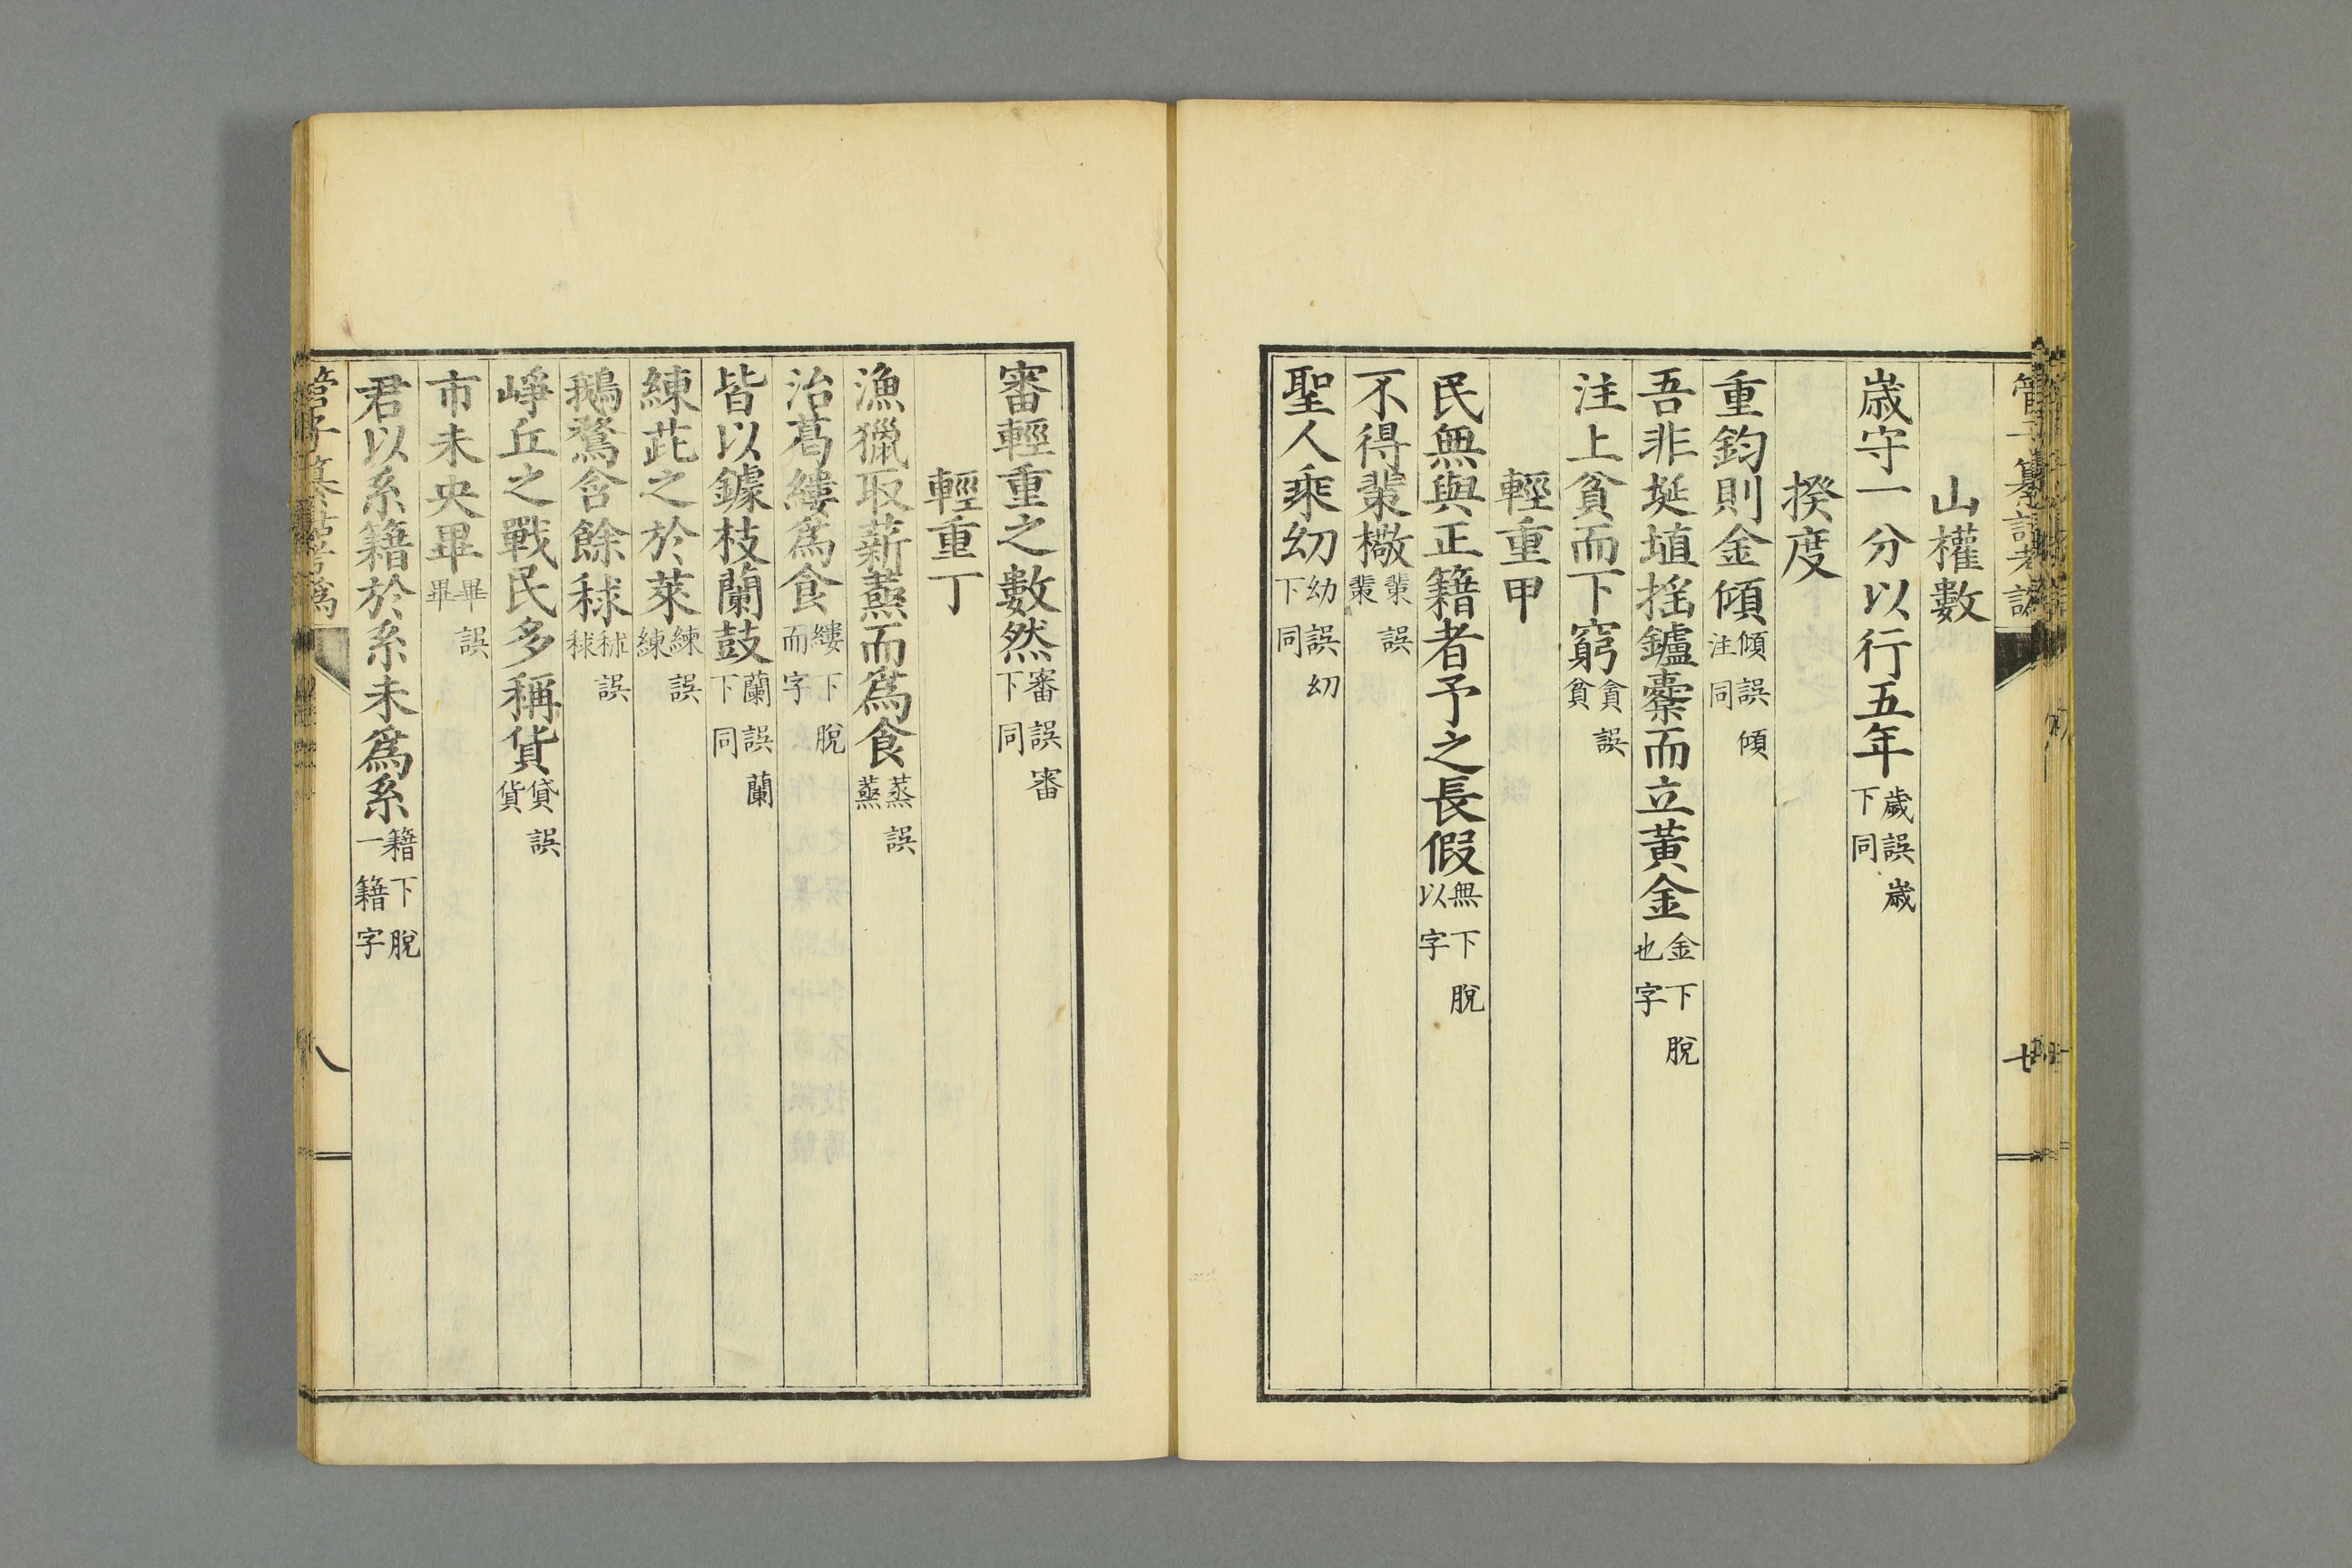 山權數
歲守一分以行五年歲誤歳下同
揆度
重鈞則金傾傾誤傾注同
吾非埏埴揺鑪橐而立黃金金下脫也字
注上貧而下窮貪誤貧
輕重甲
民無與正籍者予之長假無下脫以字
不得棐檄棐誤棐
聖人乘㓜幼誤㓜下同
審輕重之數然審誤審下同
輕重丁
漁獵取薪蒸而爲食蒸誤蒸
治葛縷爲食縷下脫而字
皆以鐻枝蘭鼓蘭誤蘭下同
練茈之於萊練誤練
鵝鶩含餘秫秫誤秫
崢丘之戰民多稱貨貸誤貨
市未央畢畢誤畢
君以糸籍於糸未爲糸籍下脫一籍字
八